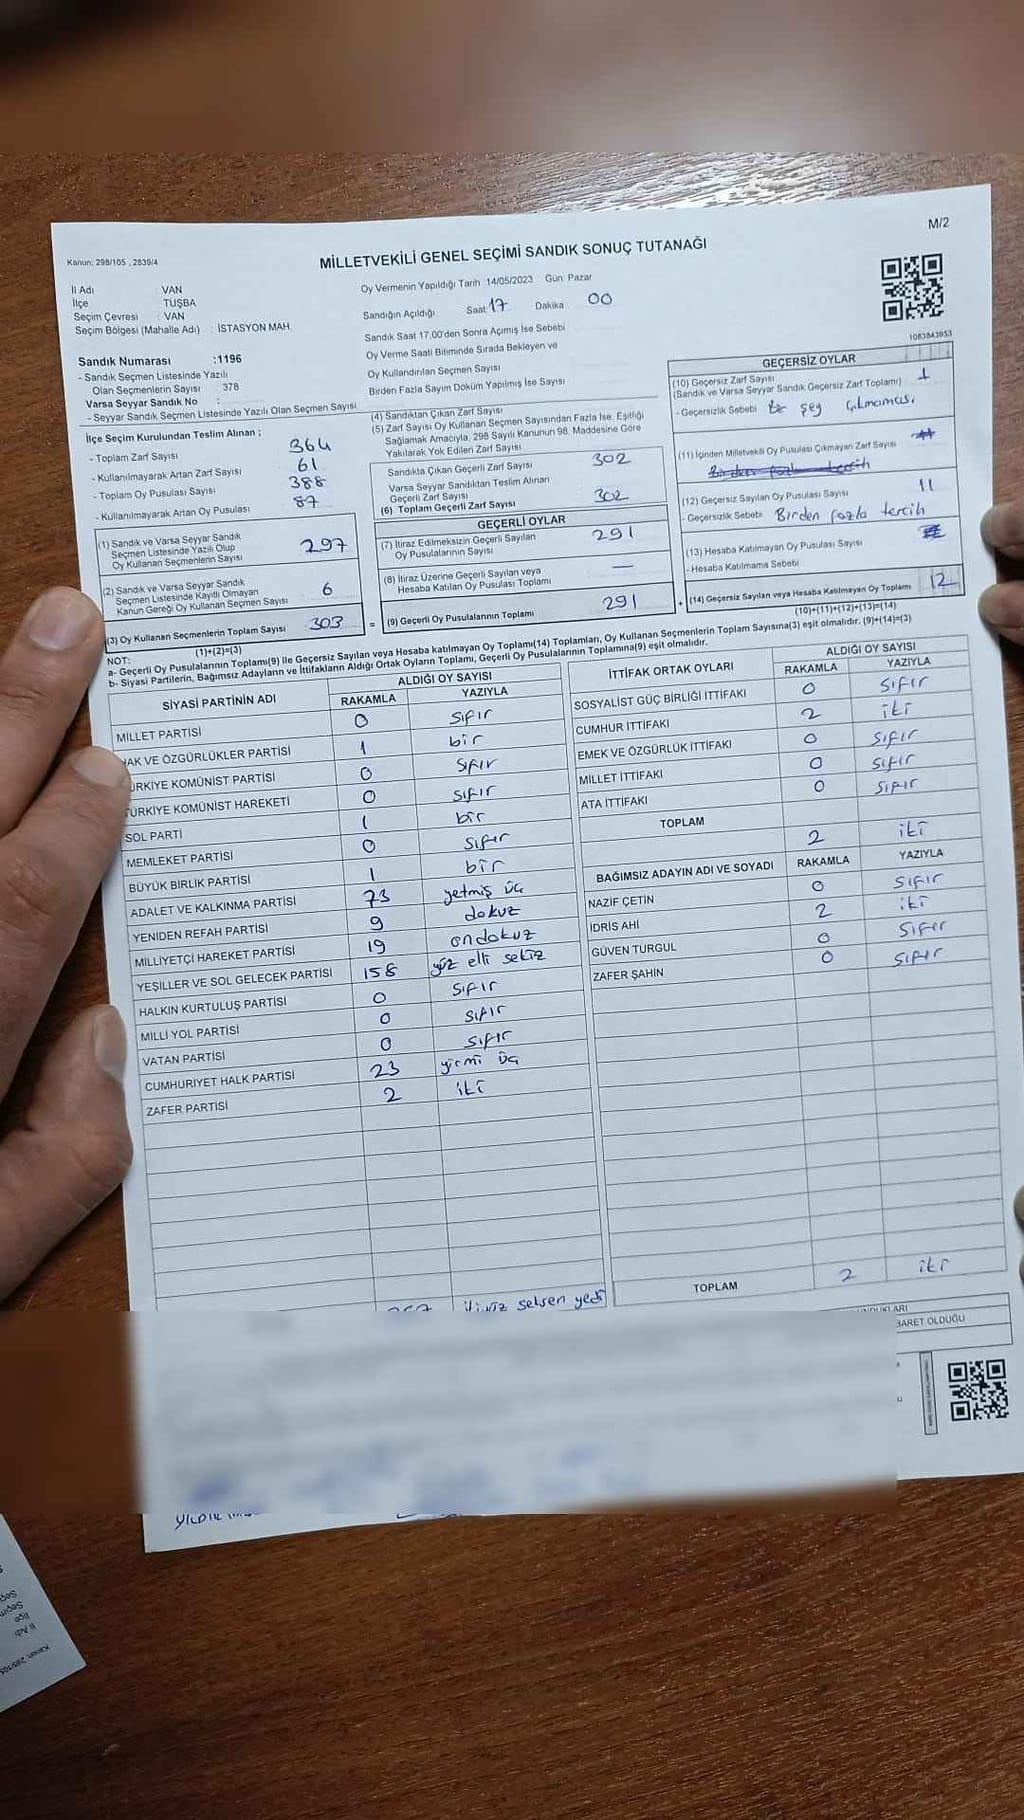 M/2
Kanun: 298/105 , 2839/4
MİLLETVEKİLİ GENEL SEÇİMİ SANDIK SONUÇ TUTANAĞI
İl Adı : VAN
İlçe : TUŞBA
Seçim Çevresi : VAN
Seçim Bölgesi (Mahalle Adı) : İSTASYON MAH.
Sandık Numarası :1196
- Sandık Seçmen Listesinde Yazılı
Olan Seçmenlerin Sayısı : 378
Varsa Seyyar Sandık No :
- Seyyar Sandık Seçmen Listesinde Yazılı Olan Seçmen Sayısı
Oy Vermenin Yapıldığı Tarih 14/05/2023 Gün Pazar
Sandığın Açıldığı Saat 17 Dakika 00
Sandık Saat 17.00'den Sonra Açımış İse Sebebi
Oy Verme Saati Bitiminde Sırada Bekleyen ve
Oy Kullandırılan Seçmen Sayısı
Birden Fazla Sayım Döküm Yapılmış İse Sayısı
1083843953
İlçe Seçim Kurulundan Teslim Alınan ;
- Toplam Zarf Sayısı 364
- Kullanılmayarak Artan Zarf Sayısı 61
- Toplam Oy Pusulası Sayısı 388
- Kullanılmayarak Artan Oy Pusulası 87
(1) Sandık ve Varsa Seyyar Sandık
Seçmen Listesinde Yazılı Olup
Oy Kullanan Seçmenlerin Sayısı 297
(2) Sandık ve Varsa Seyyar Sandık
Seçmen Listesinde Kayıtlı Olmayan
Kanun Gereği Oy Kullanan Seçmen Sayısı 6
(3) Oy Kullanan Seçmenlerin Toplam Sayısı 303 =
(1)+(2)=(3)
(4) Sandıktan Çıkan Zarf Sayısı
(5) Zarf Sayısı Oy Kullanan Seçmen Sayısından Fazla İse, Eşitliği
Sağlamak Amacıyla, 298 Sayılı Kanunun 98. Maddesine Göre
Yakılarak Yok Edilen Zarf Sayısı
Sandıkta Çıkan Geçerli Zarf Sayısı 302
Varsa Seyyar Sandıktan Teslim Alınan
Geçerli Zarf Sayısı
(6) Toplam Geçerli Zarf Sayısı 302
GEÇERLİ OYLAR
(7) İtiraz Edilmeksizin Geçerli Sayılan
Oy Pusulalarının Sayısı 291
(8) İtiraz Üzerine Geçerli Sayılan veya
Hesaba Katılan Oy Pusulası Toplamı —
(9) Geçerli Oy Pusulalarının Toplamı 291 +
GEÇERSİZ OYLAR
(10) Geçersiz Zarf Sayısı
(Sandık ve Varsa Seyyar Sandık Geçersiz Zarf Toplamı) 1
- Geçersizlik Sebebi Bir şey çıkmaması
(11) İçinden Milletvekili Oy Pusulası Çıkmayan Zarf Sayısı
Birden fazla tercih
(12) Geçersiz Sayılan Oy Pusulası Sayısı 11
- Geçersizlik Sebebi Birden fazla tercih
(13) Hesaba Katılmayan Oy Pusulası Sayısı
- Hesaba Katılmama Sebebi
(14) Geçersiz Sayılan veya Hesaba Katılmayan Oy Toplamı 12
(10)+(11)+(12)+(13)=(14)
NOT:
a- Geçerli Oy Pusulalarının Toplamı(9) ile Geçersiz Sayılan veya Hesaba katılmayan Oy Toplamı(14) Toplamları, Oy Kullanan Seçmenlerin Toplam Sayısına(3) eşit olmalıdır. (9)+(14)=(3)
b- Siyasi Partilerin, Bağımsız Adayların ve İttifakların Aldığı Ortak Oyların Toplamı, Geçerli Oy Pusulalarının Toplamına(9) eşit olmalıdır.
SİYASİ PARTİNİN ADI ALDIĞI OY SAYISI
RAKAMLA YAZIYLA
MİLLET PARTİSİ 0 sıfır
HAK VE ÖZGÜRLÜKLER PARTİSİ 1 bir
TÜRKİYE KOMÜNİST PARTİSİ 0 sıfır
TÜRKİYE KOMÜNİST HAREKETİ 0 sıfır
SOL PARTİ 1 bir
MEMLEKET PARTİSİ 0 sıfır
BÜYÜK BİRLİK PARTİSİ 1 bir
ADALET VE KALKINMA PARTİSİ 73 yetmiş üç
YENİDEN REFAH PARTİSİ 9 dokuz
MİLLİYETÇİ HAREKET PARTİSİ 19 ondokuz
YEŞİLLER VE SOL GELECEK PARTİSİ 158 yüz elli sekiz
HALKIN KURTULUŞ PARTİSİ 0 sıfır
MİLLİ YOL PARTİSİ 0 sıfır
VATAN PARTİSİ 0 sıfır
CUMHURİYET HALK PARTİSİ 23 yirmi üç
ZAFER PARTİSİ 2 iki
ikiyüz seksen yedi
İTTİFAK ORTAK OYLARI ALDIĞI OY SAYISI
RAKAMLA YAZIYLA
SOSYALİST GÜÇ BİRLİĞİ İTTİFAKI 0 sıfır
CUMHUR İTTİFAKI 2 iki
EMEK VE ÖZGÜRLÜK İTTİFAKI 0 sıfır
MİLLET İTTİFAKI 0 sıfır
ATA İTTİFAKI 0 sıfır
TOPLAM 2 iki
BAĞIMSIZ ADAYIN ADI VE SOYADI RAKAMLA YAZIYLA
NAZİF ÇETİN 0 sıfır
İDRİS AHİ 2 iki
GÜVEN TURGUL 0 sıfır
ZAFER ŞAHİN 0 sıfır
TOPLAM 2 iki
BARET OLDUĞU